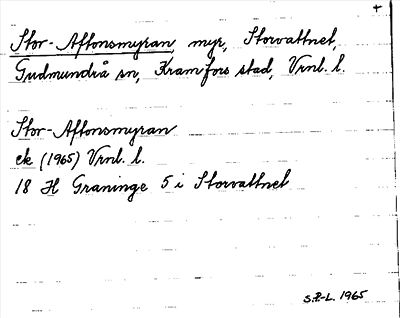 +
Stor-Aftonsmyran, myr, Storvattnet,
Gudmundrå sn, Kramfors stad, Vrnl. l.
Stor-Aftonsmyran
ek (1965) Vrnl. l.
18 H Graninge 5 i Storvattnet
S.P-L. 1965